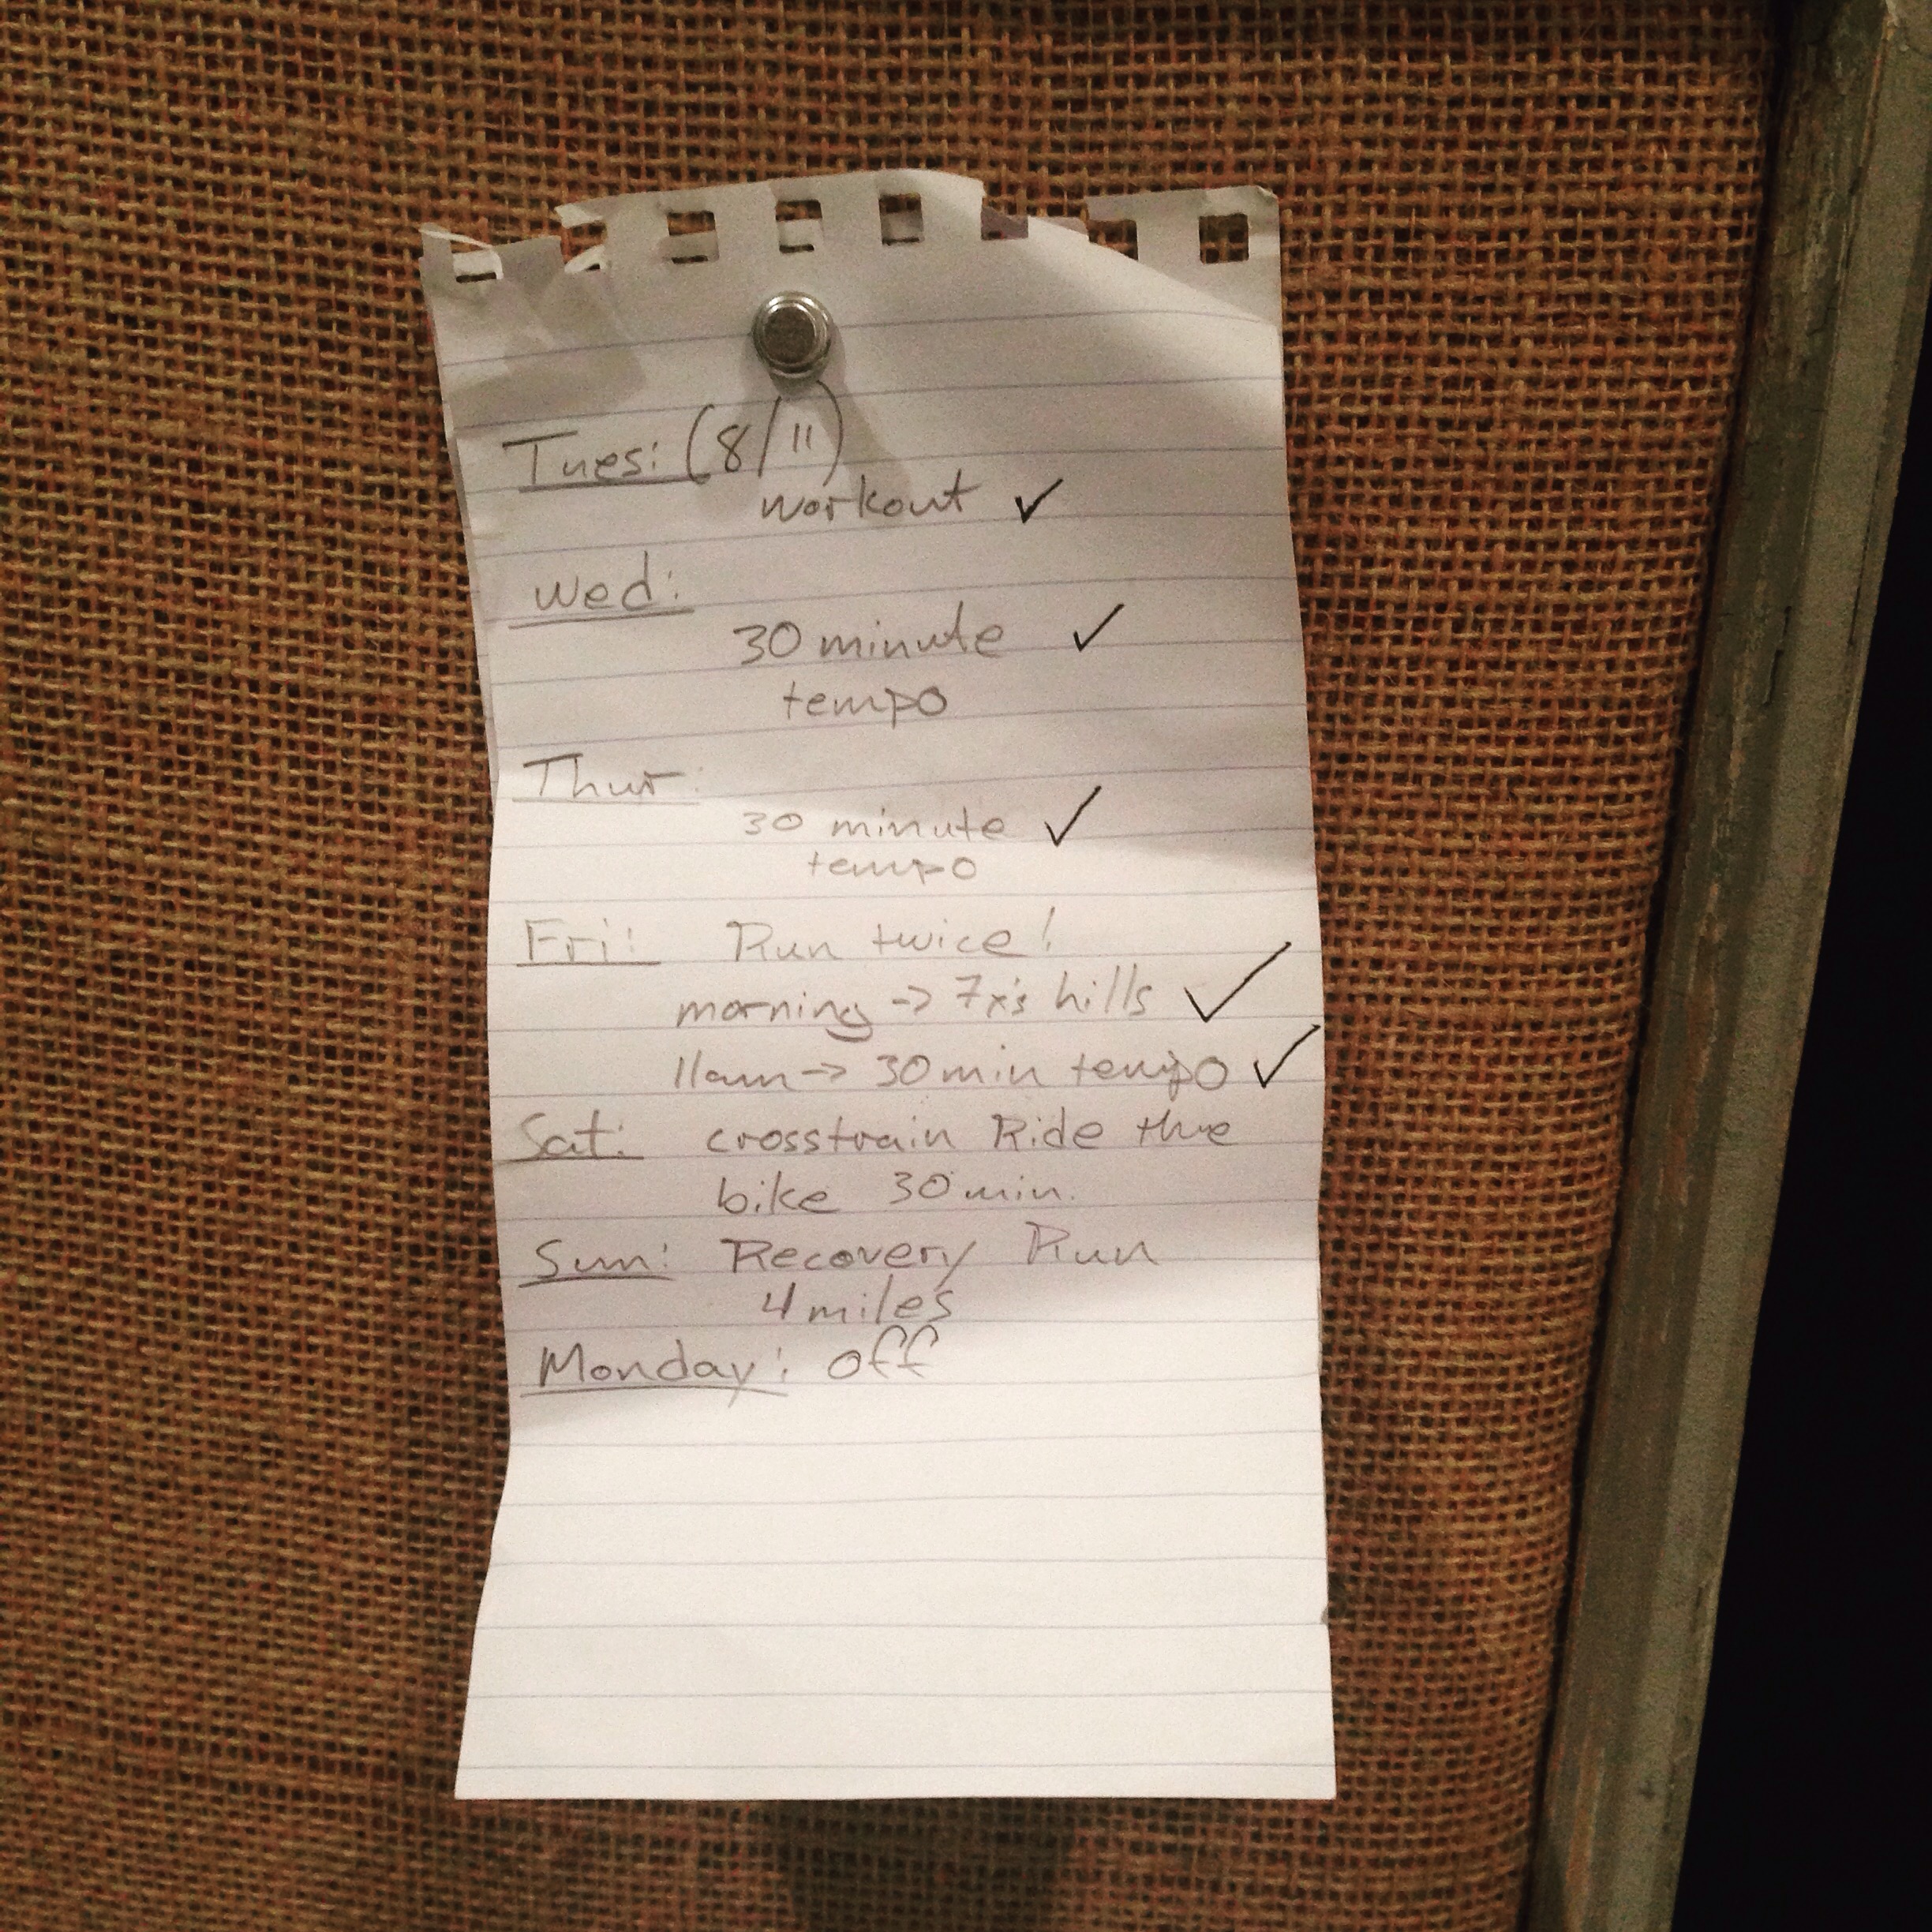 Tues: (8/11)
workout ✓
Wed:
30 minute ✓
tempo
Thur:
30 minute ✓
tempo
Fri: Run twice!
morning -> 7x's hills ✓
11am -> 30 min tempo ✓
Sat: crosstrain Ride the
bike 30 min.
Sun: Recovery Run
4 miles
Monday: off